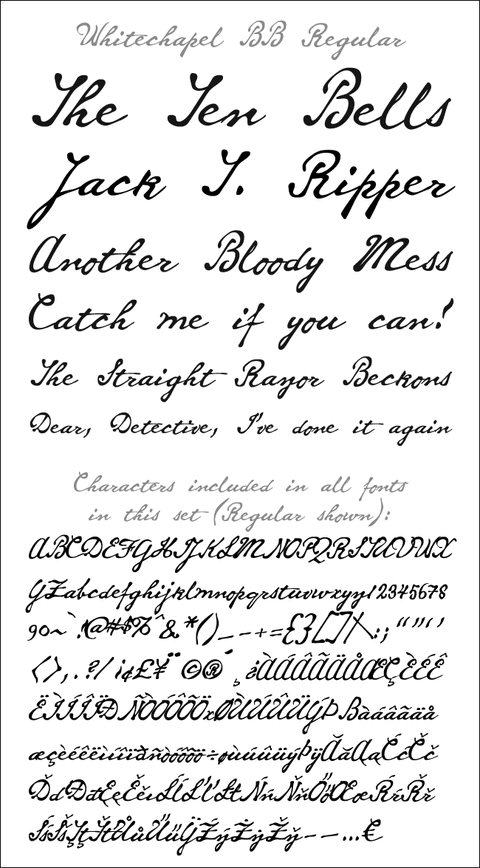 Whitechapel BB Regular
The Ten Bells
Jack T. Ripper
Another Bloody Mess
Catch me if you can!
The Straight Razor Beckons
Dear, Detective, I've done it again
Characters included in all fonts
in this set (Regular shown):
ABCDEFGHIJKLMNOPQRSTUVWX
YZabcdefghijklmnopqrstuvwxyz12345678
90~`!@#$%^&*()_--+={}[]/\:;“”‘’
<>,.?/¡¢£¥¨©®´¸àÀÁÂÃÄÅÆÇÈÉÊ
ËÌÍÎÏÐÑÒÓÔÕÖרÙÚÛÜÝÞBàáâãäå
æçèéêëìíîïðñòóôõö÷øùúûüýþÿĂăĄąĆćČč